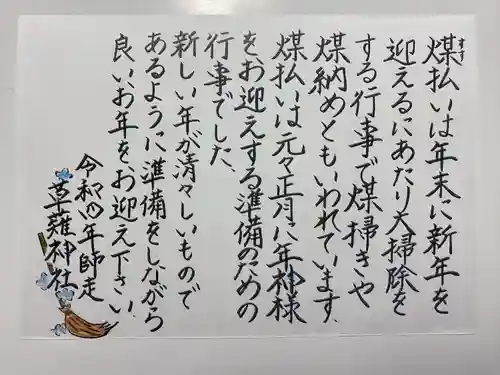 煤払いは年末に新年を
すす
迎えるにあたり大掃除を
する行事で煤掃きや
煤納めともいわれています。
煤払いは元々正月に年神様
をお迎えする準備のための
行事でした。
新しい年が清々しいもので
あるように準備をしながら
良いお年をお迎え下さい。
令和四年師走
草薙神社